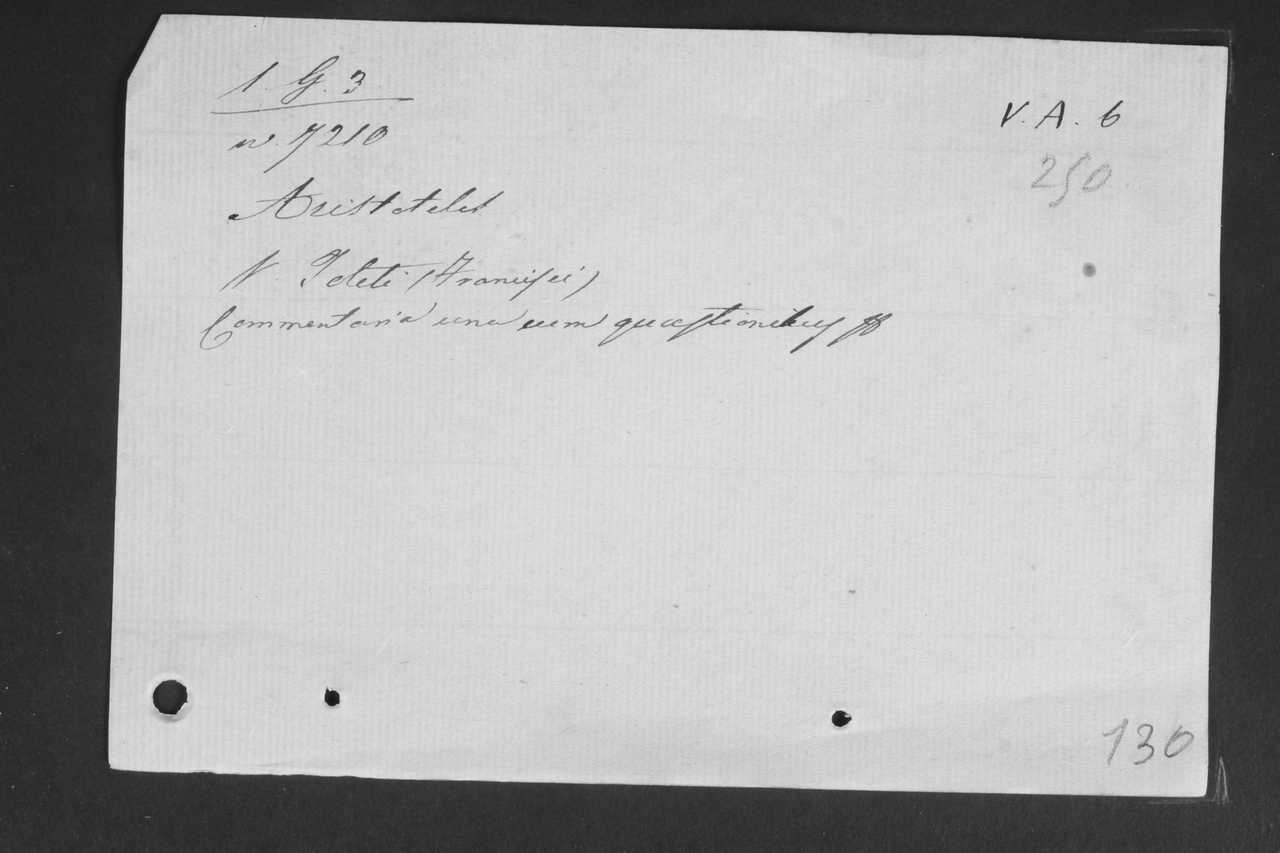 1. G. 3
V. A. 6
n. 7210
250
Aristoteles
V. Toleti (Francisci)
Commentaria una cum quæstionibus
130